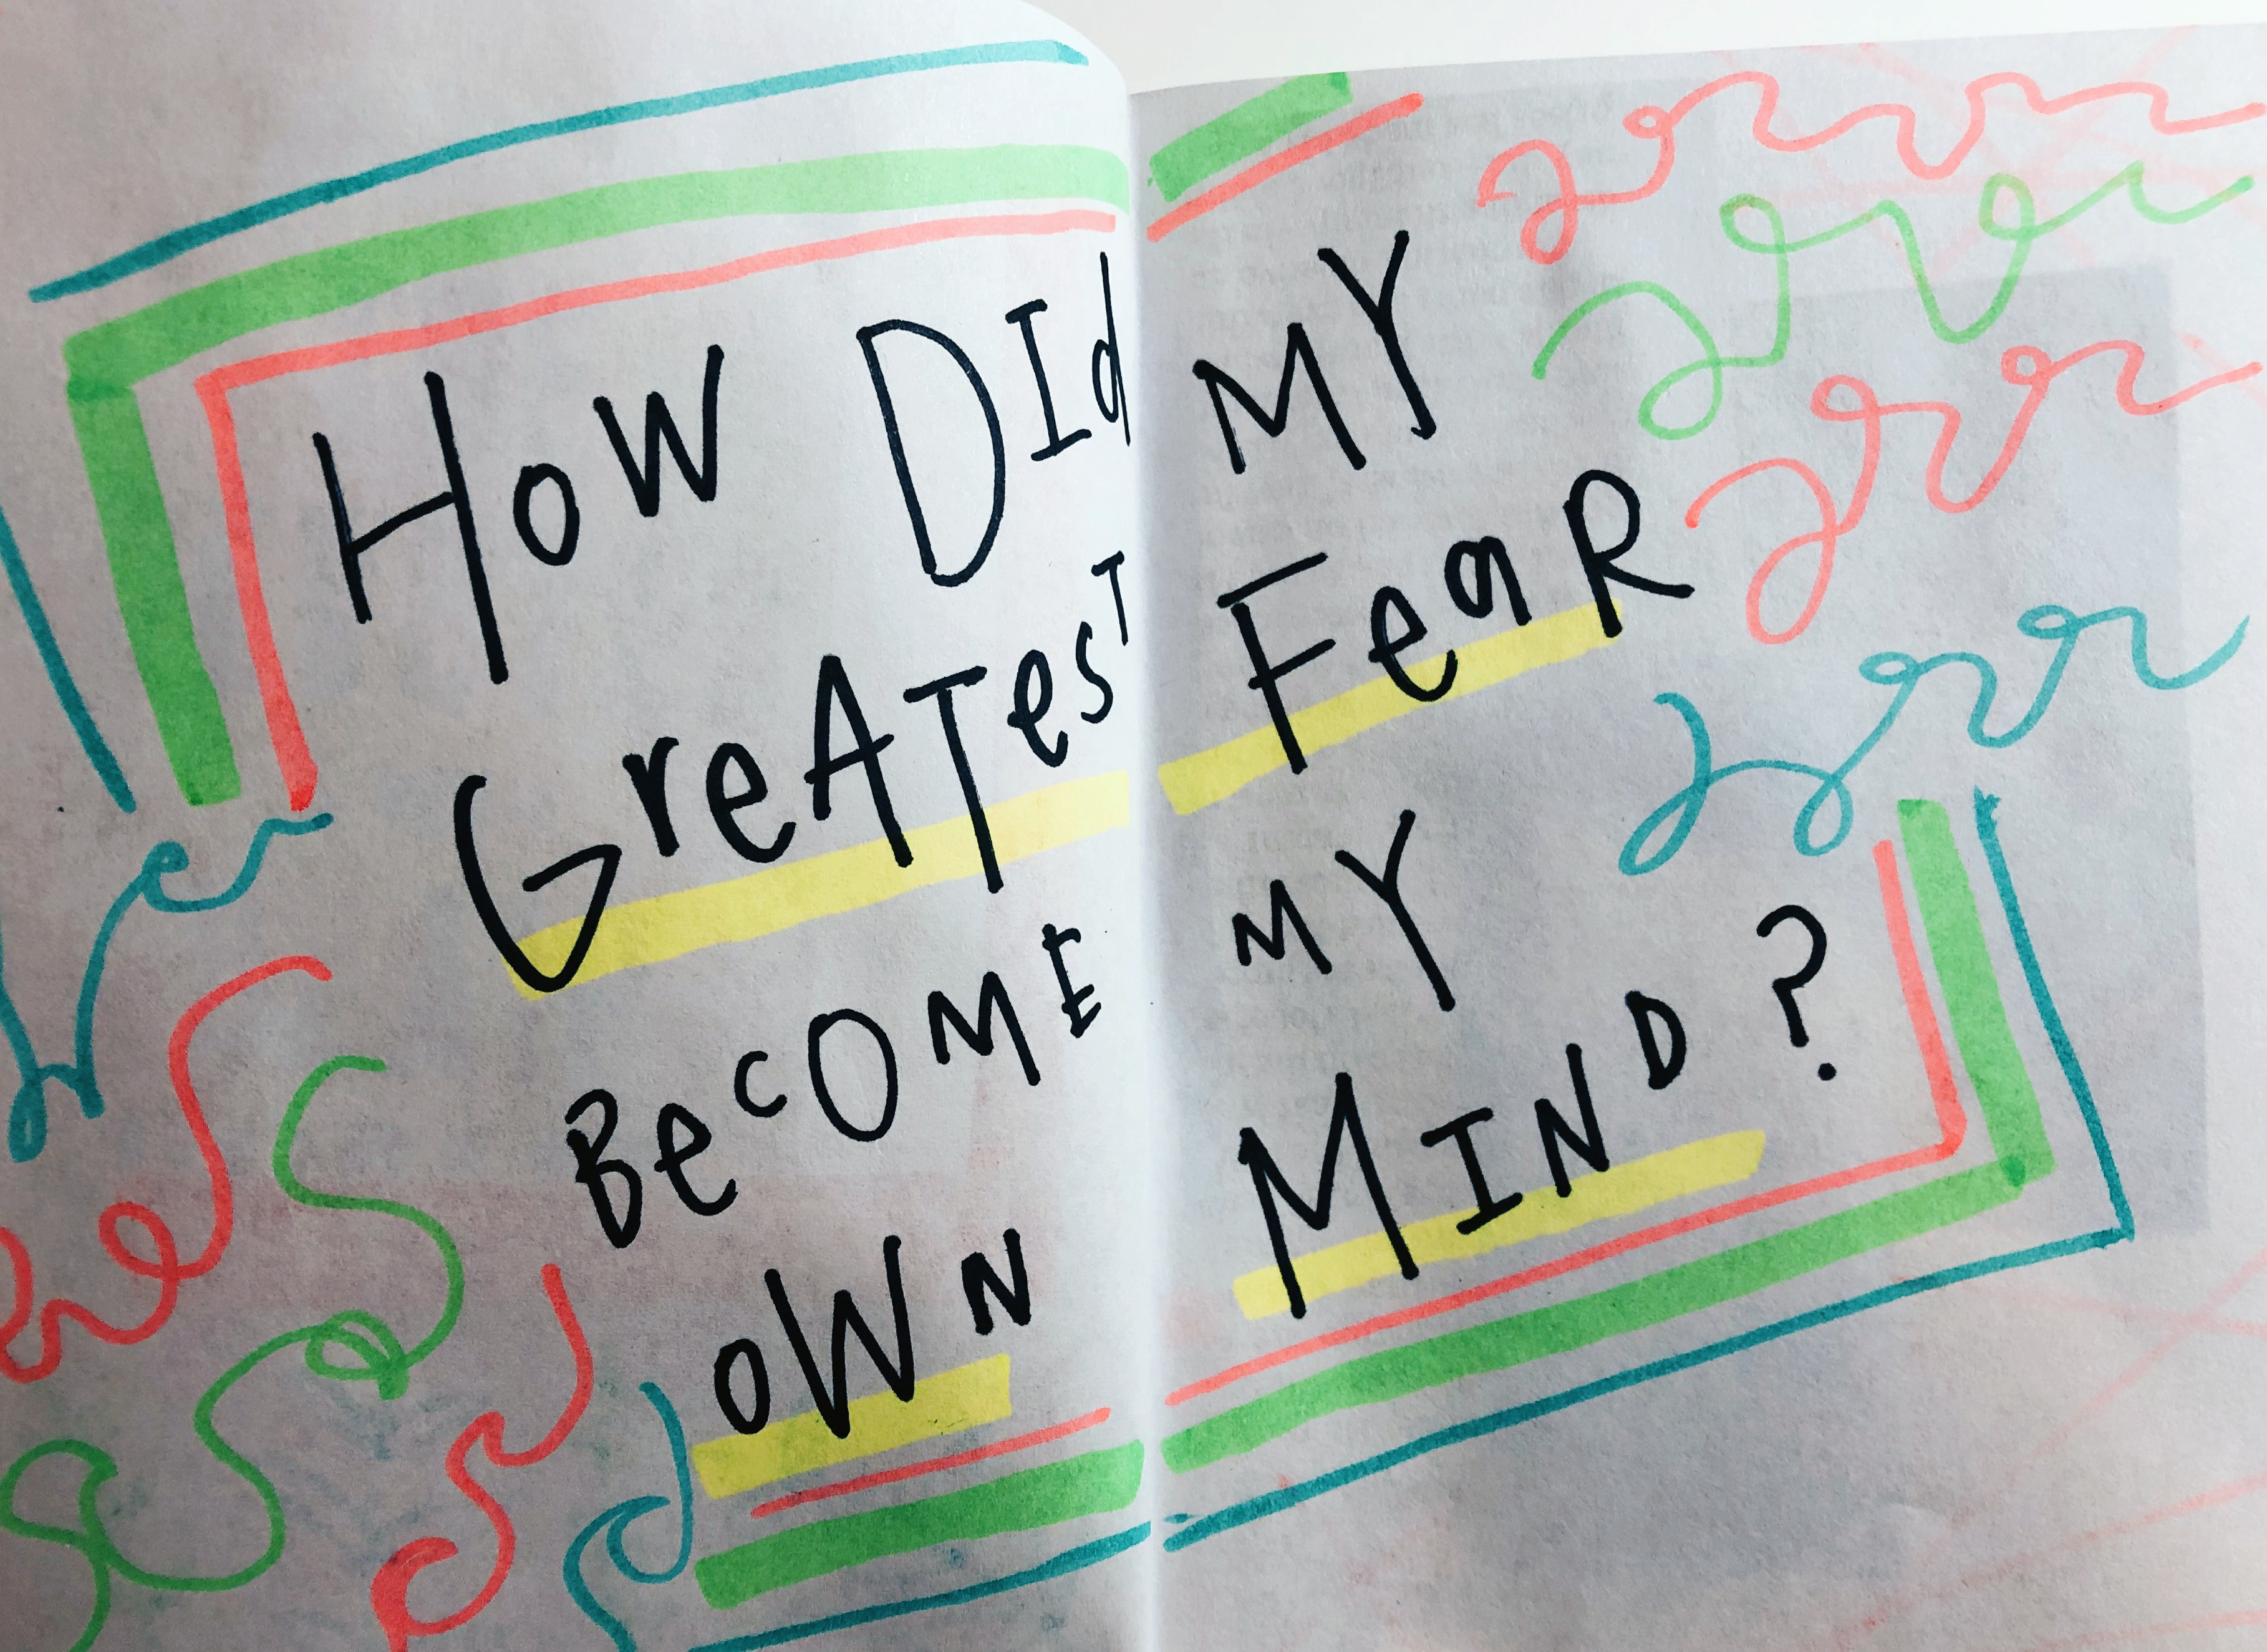 How DId MY
GreATesT FeaR
BecOME MY
oWN MIND?